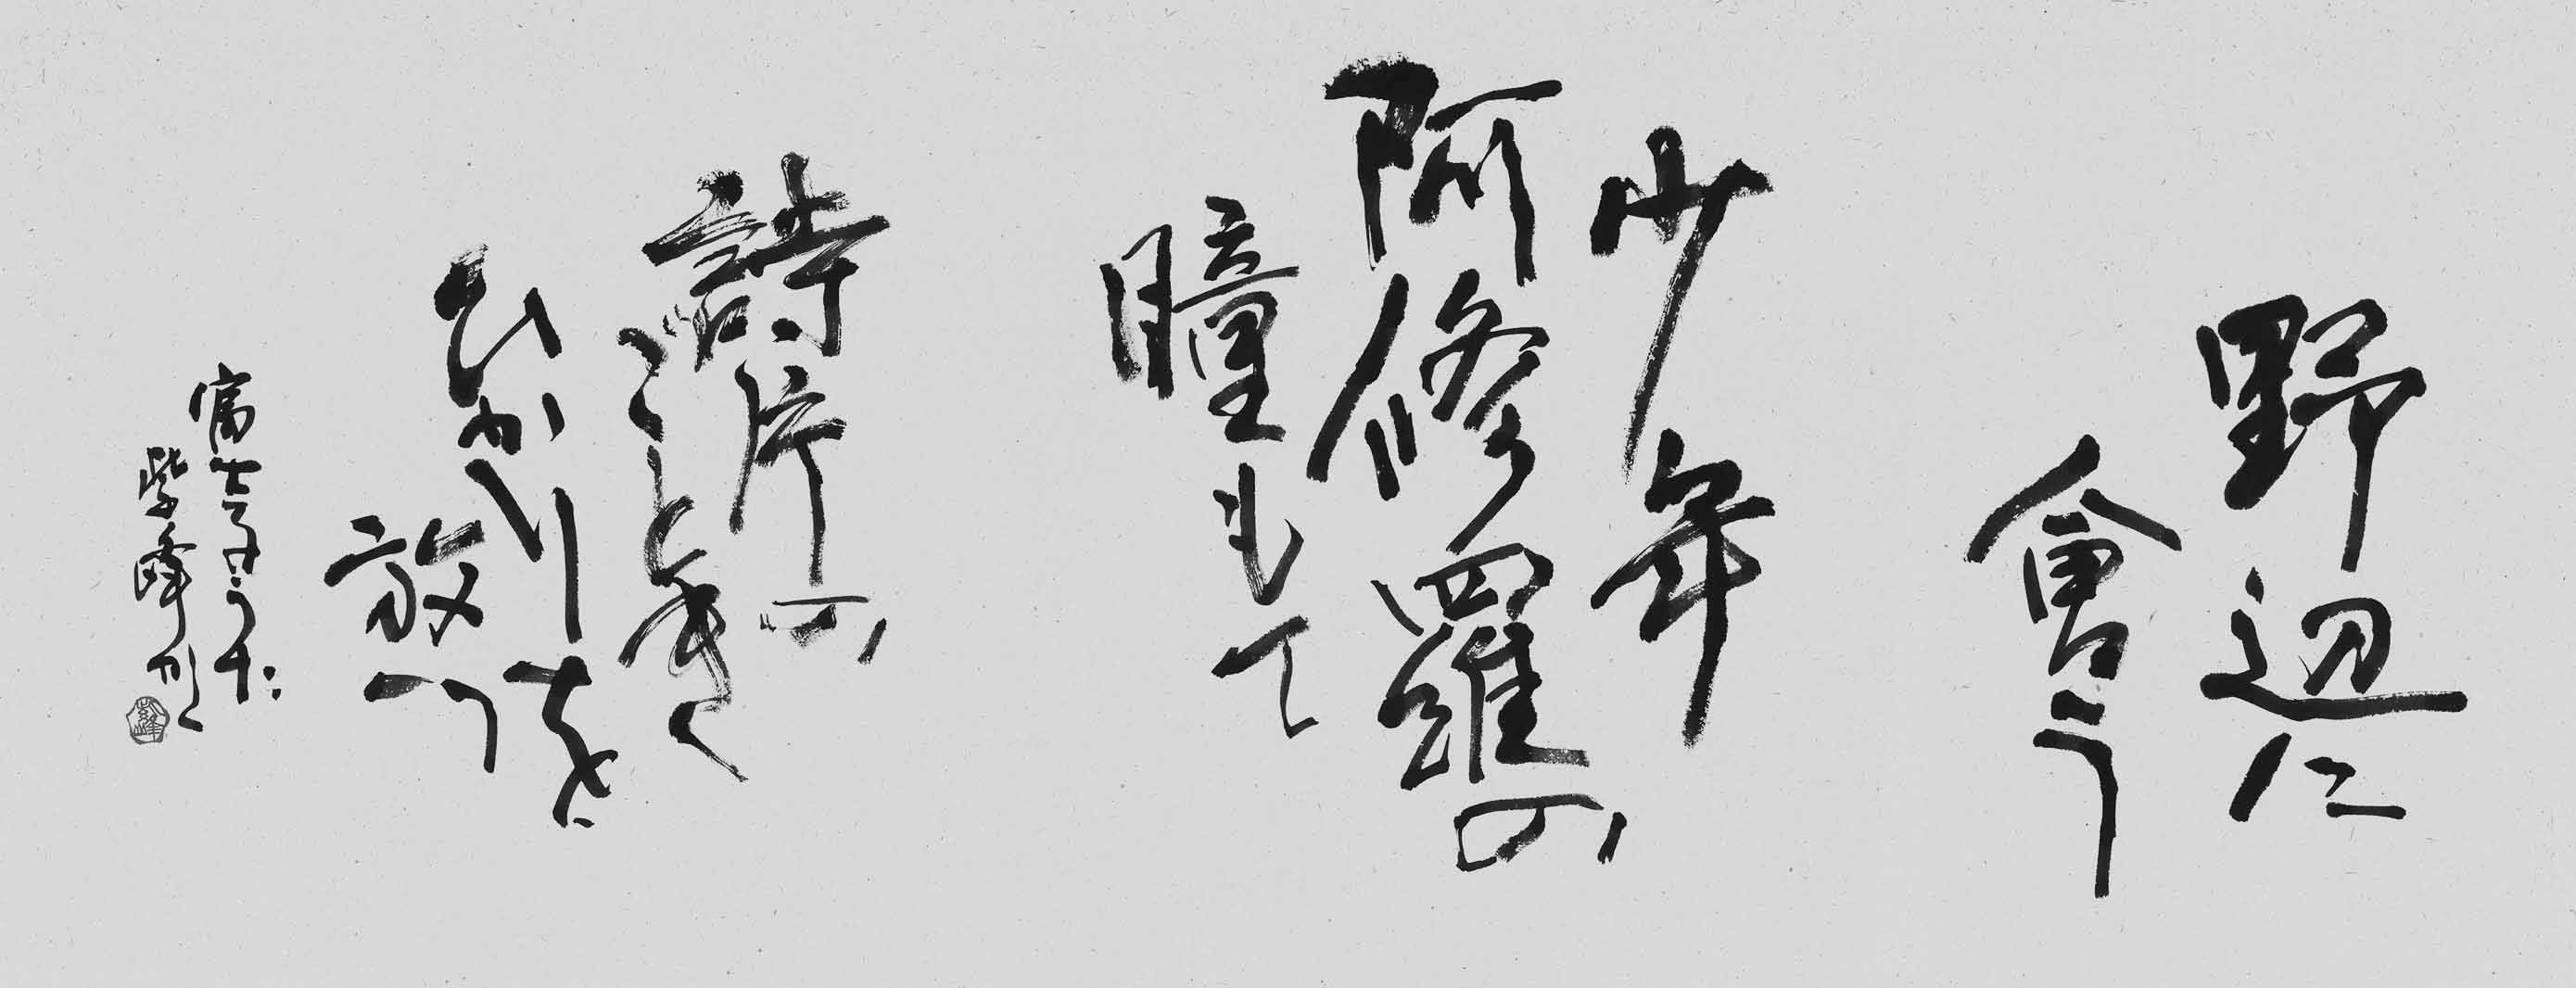 野辺に
會う
少年
阿修羅の
瞳もて
詩片の
ごとき
ひかりを
放つ
うた
紫峰かく